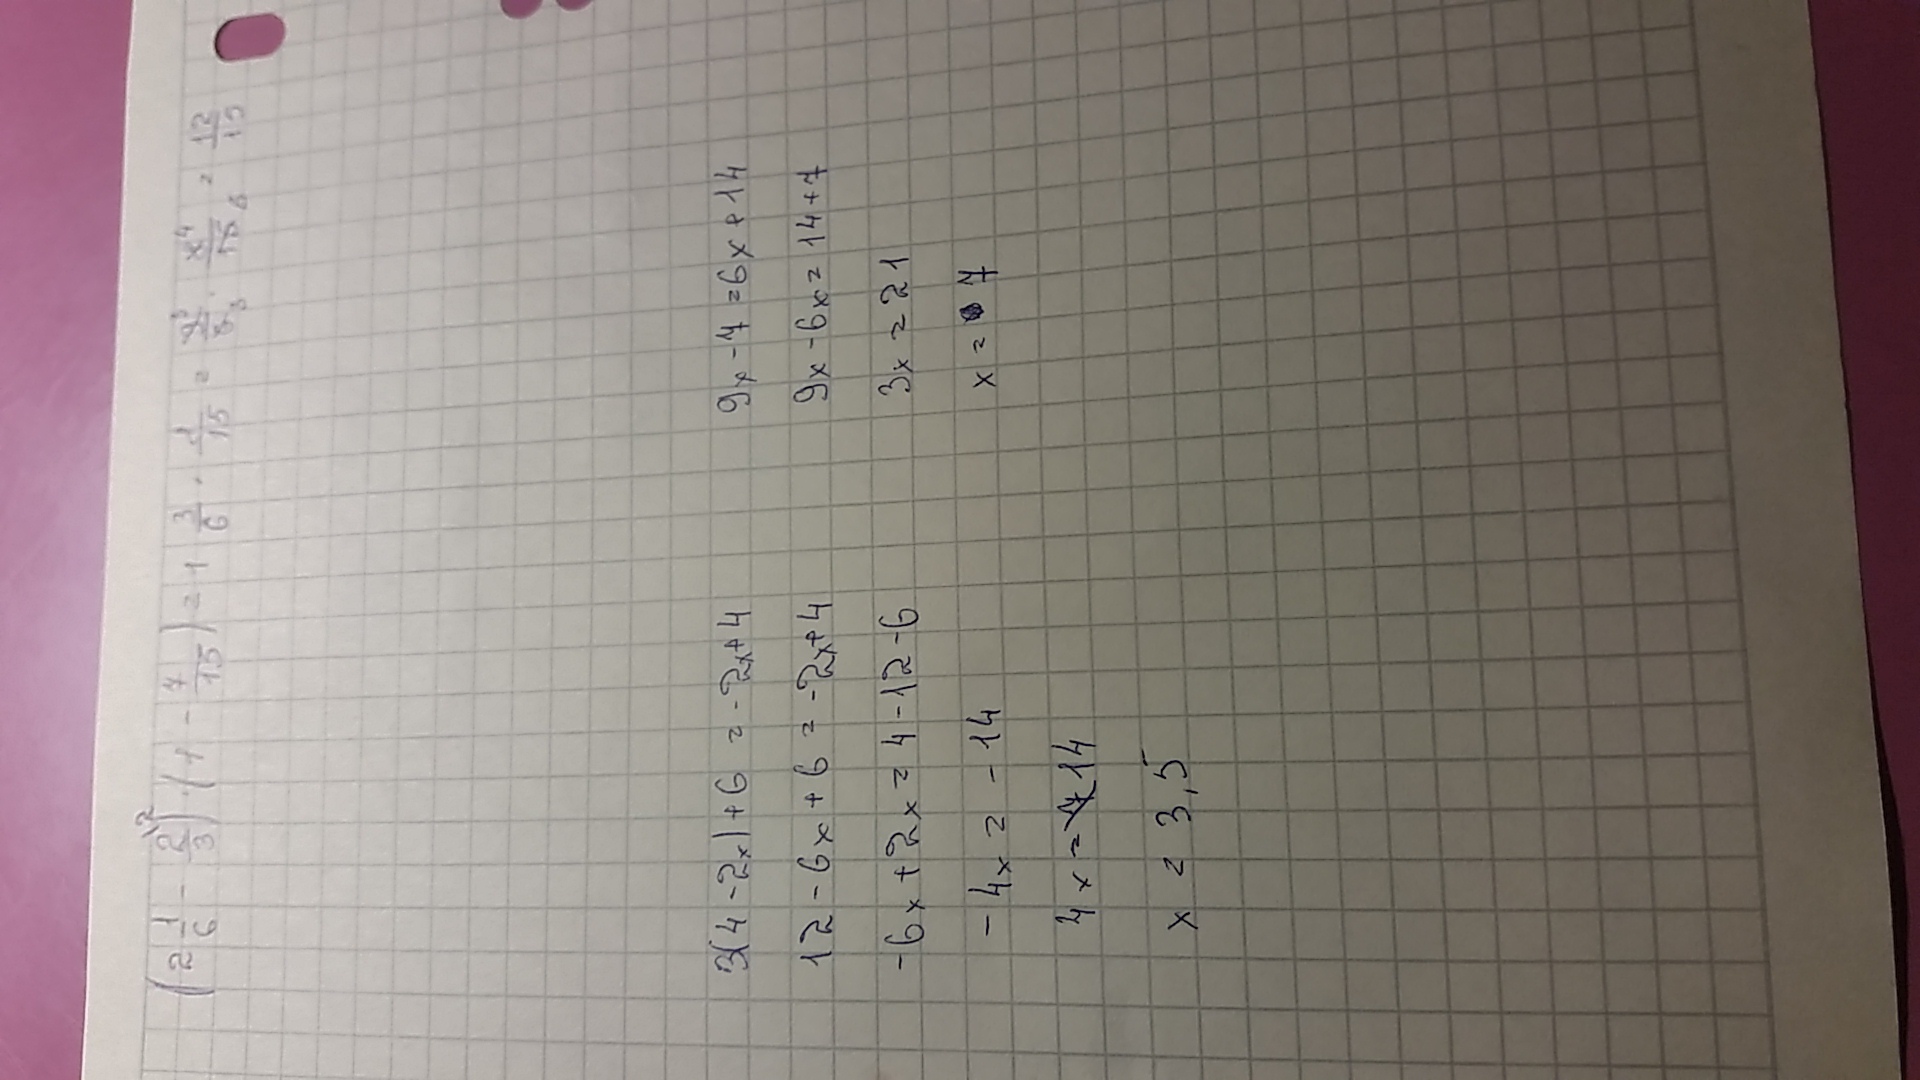 (2 1/6 - 2/3 \2) · (1 - 7/15) = 1 3/6 ·
3(4 - 2x) + 6 = - 2x + 4
12 - 6x + 6 = - 2x + 4
- 6x + 2x = 4 - 12 - 6
- 4x = - 14
4x = 14
x = 3,5
9x - 7 = 6x + 14
9x - 6x = 14 + 7
3x = 21
x = 7